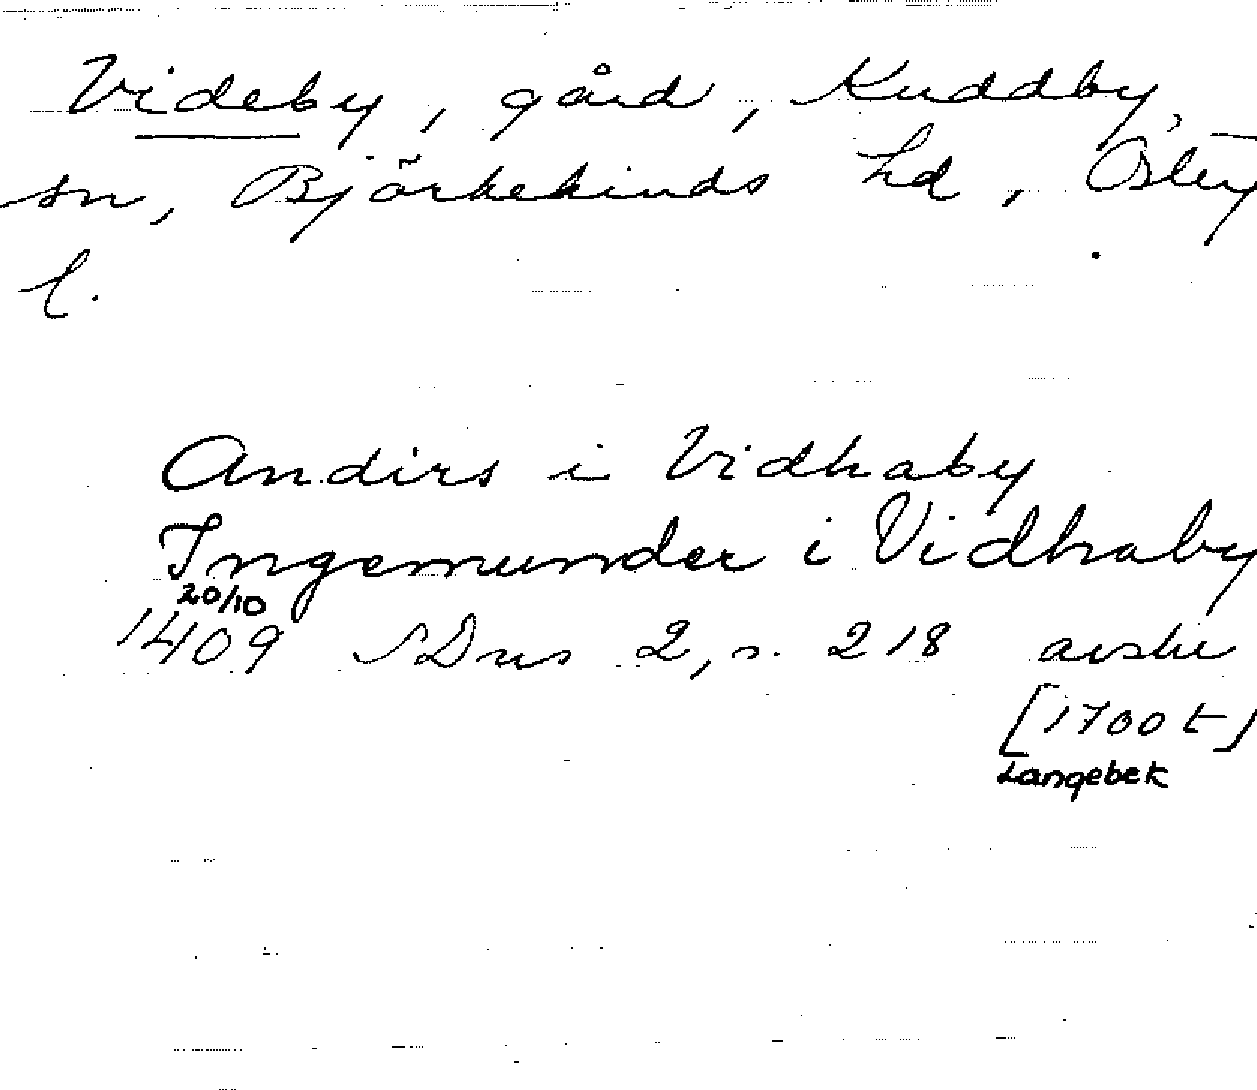 Videby, gård, Kuddby
sn, Björkekinds hd, Österg
l.
Andirs i Vidhaby
Ingemunder i Vidhaby
20/10
1409 SDns 2, s. 218 avskr
[1700 t]
Langebek